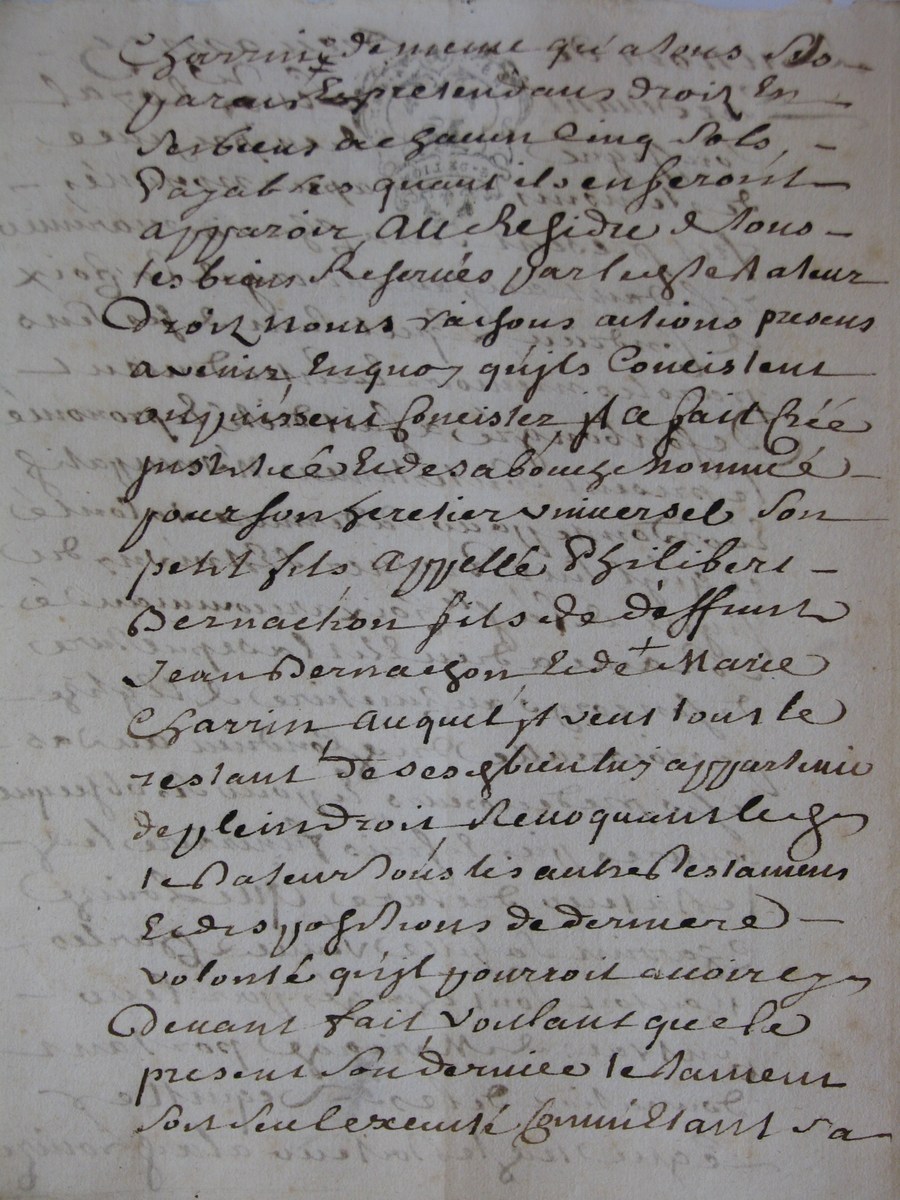 Charrin de meme qu'a tous ses
parans & pretendans droit En
ses biens de chacun Cinq sols
Payables quant ils en feront
apparoir, Au Residu de tous
les biens Reservés par led testateur
Droit noms raisons actions presens
a venir, En quoy qu'jls Concistent
ou puissent Concister jl a fait Créé
justitué & de sa bouche nommé
pour son heretier universel son
petit fils appellé Philibert
Bernachon fils de deffunt
Jean Bernachon & de + Marie
Charrin auquel jl veut tous le
restant de sesd bien luy appartenir
de plein droit Revoquant led
testateur tous les autre testamens
& dispositions de derniere
volonté qu'jl pourroit avoir cy
Devant fait voulant que le
present son dernier testament
soit seul executé Commettant sa